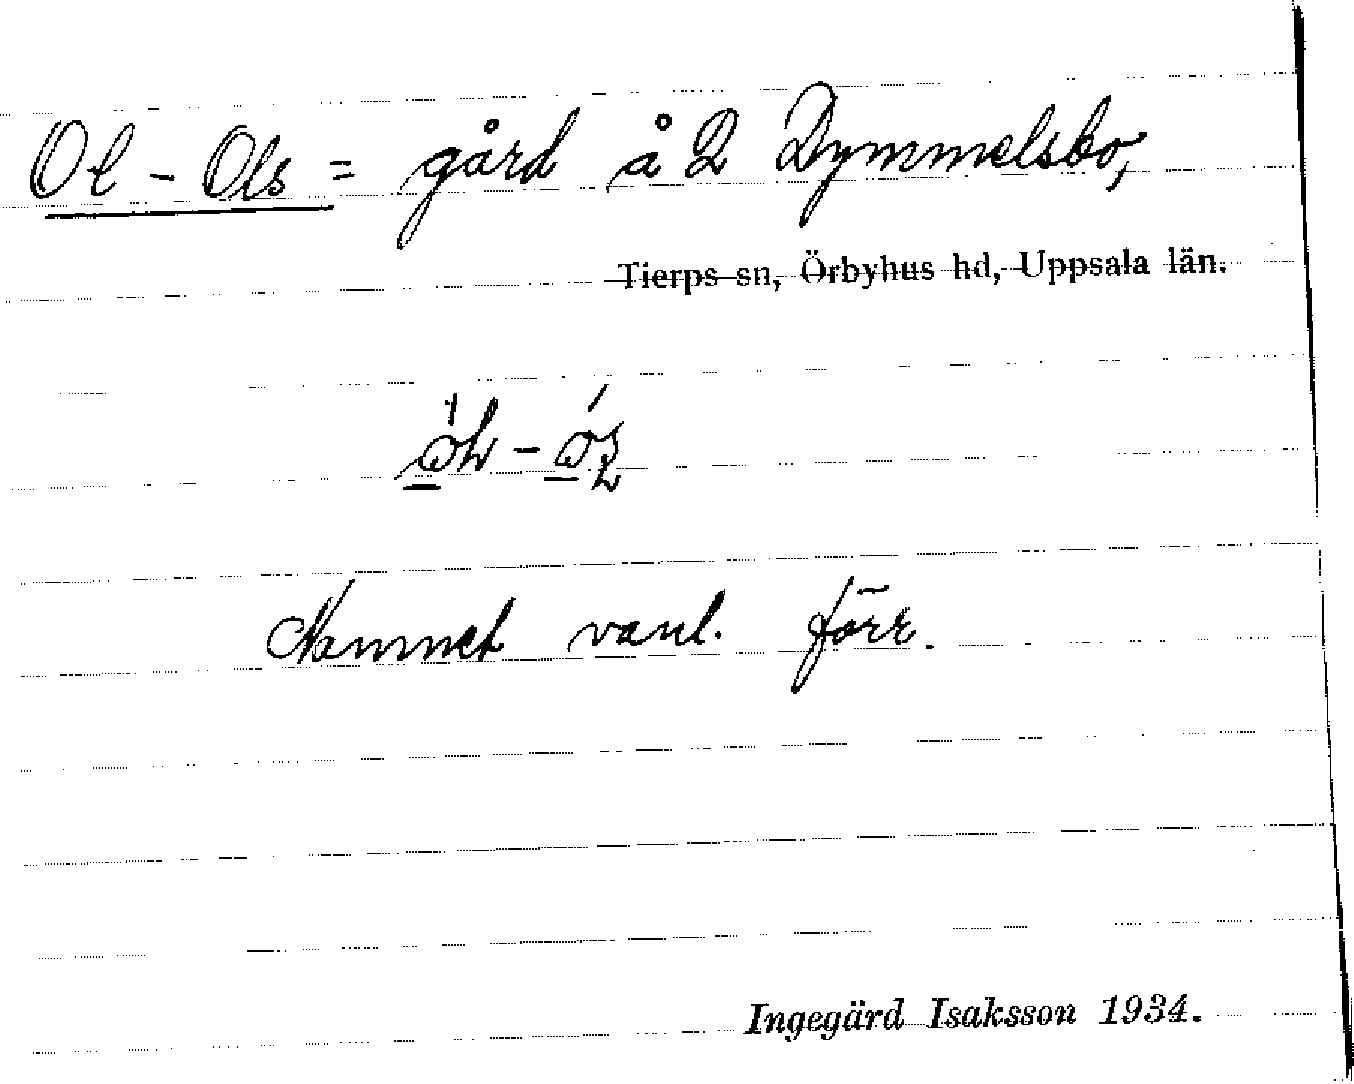 Ol-Ols= gård å 2 Dymmelsbo,
Tierps sn, Örbyhus hd, Uppsala län.
Namnet vanl. förr.
Ingegärd Isaksson 1934.